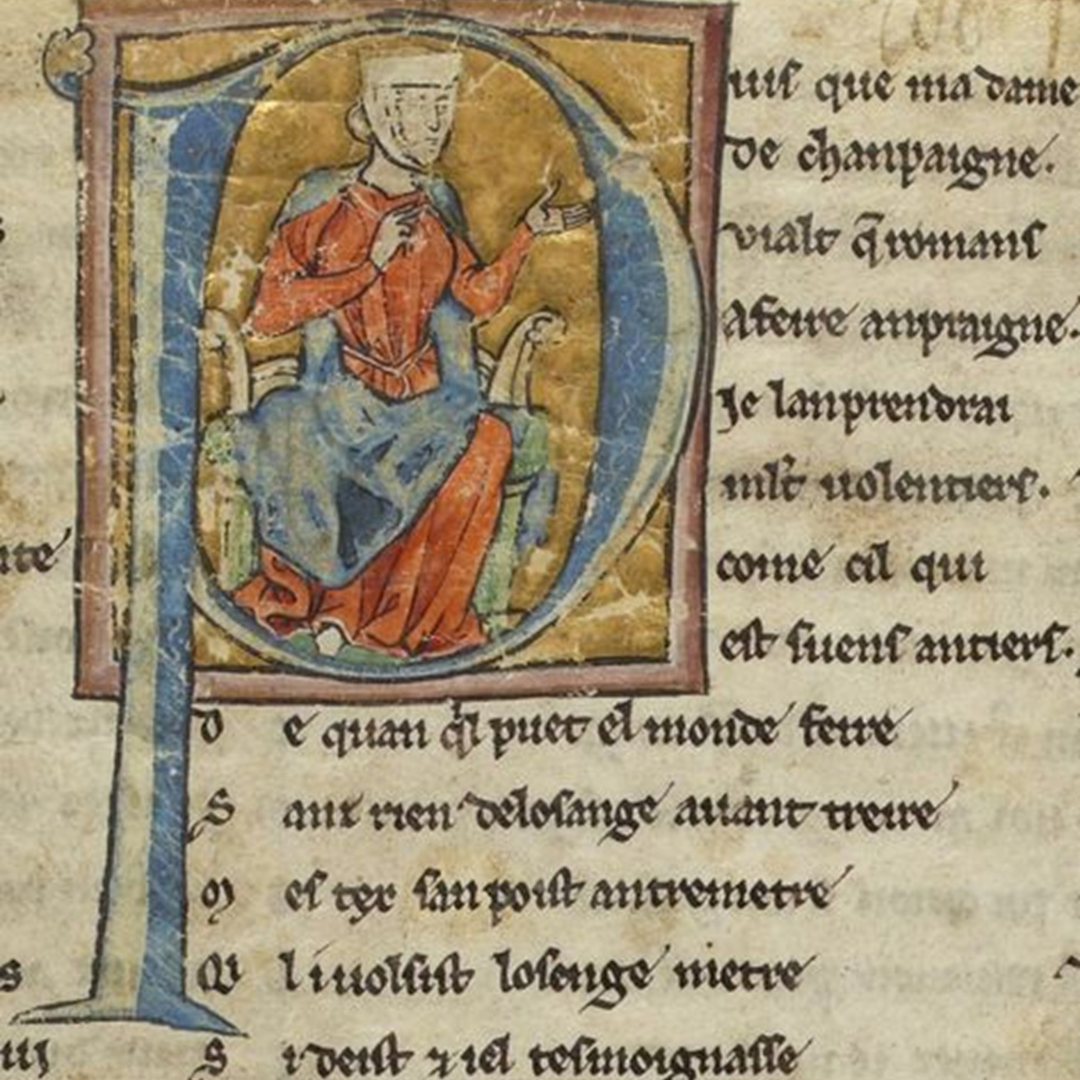 Puis que ma dame
de chanpaigne.
vialt q̃ romans
A feire anpraigne.
Je lanprendrai
mlt̃ uolentiers.
come cil qui
est suens antiers.
D e quan q̃l puet el monde feire
S anz rien de losange auant treire
M es tex san poist antremetre
Q i i uolsist losenge metre
S i deist ⁊ iel tesmoignasse